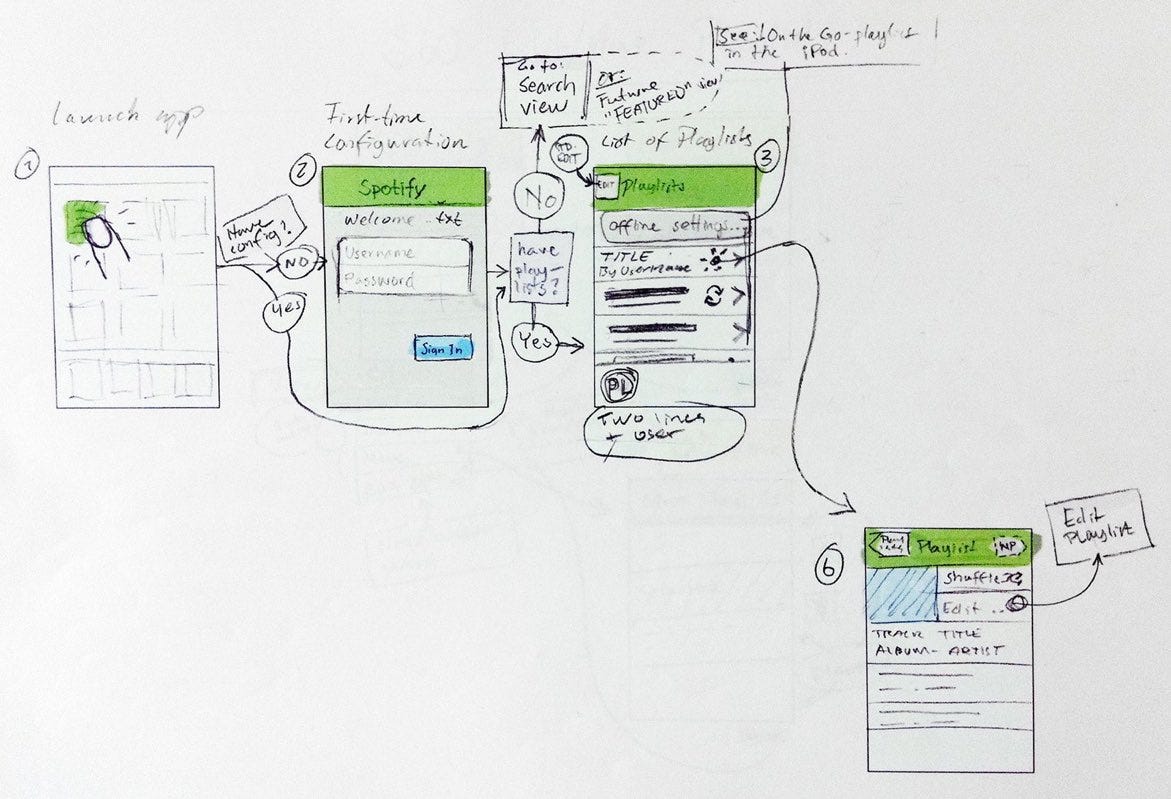 Launch app
1
Have
config?
NO
Yes
First-time
configuration
2
Spotify
Welcome ..txt
Username
Password
Sign In
have
play-
lists?
No
Yes
Go to:
Search
view
or:
Future
"FEATURED" view
See: On the Go-playlist
in the iPod.
List of Playlists
3
TO.
EDIT
EDIT
Playlists
Offline settings...
TITLE
By Username
PL
Two lines
+ user
6
Playlist
NP
Shuffle
Edit ..
TRACK TITLE
ALBUM - ARTIST
Edit
Playlist